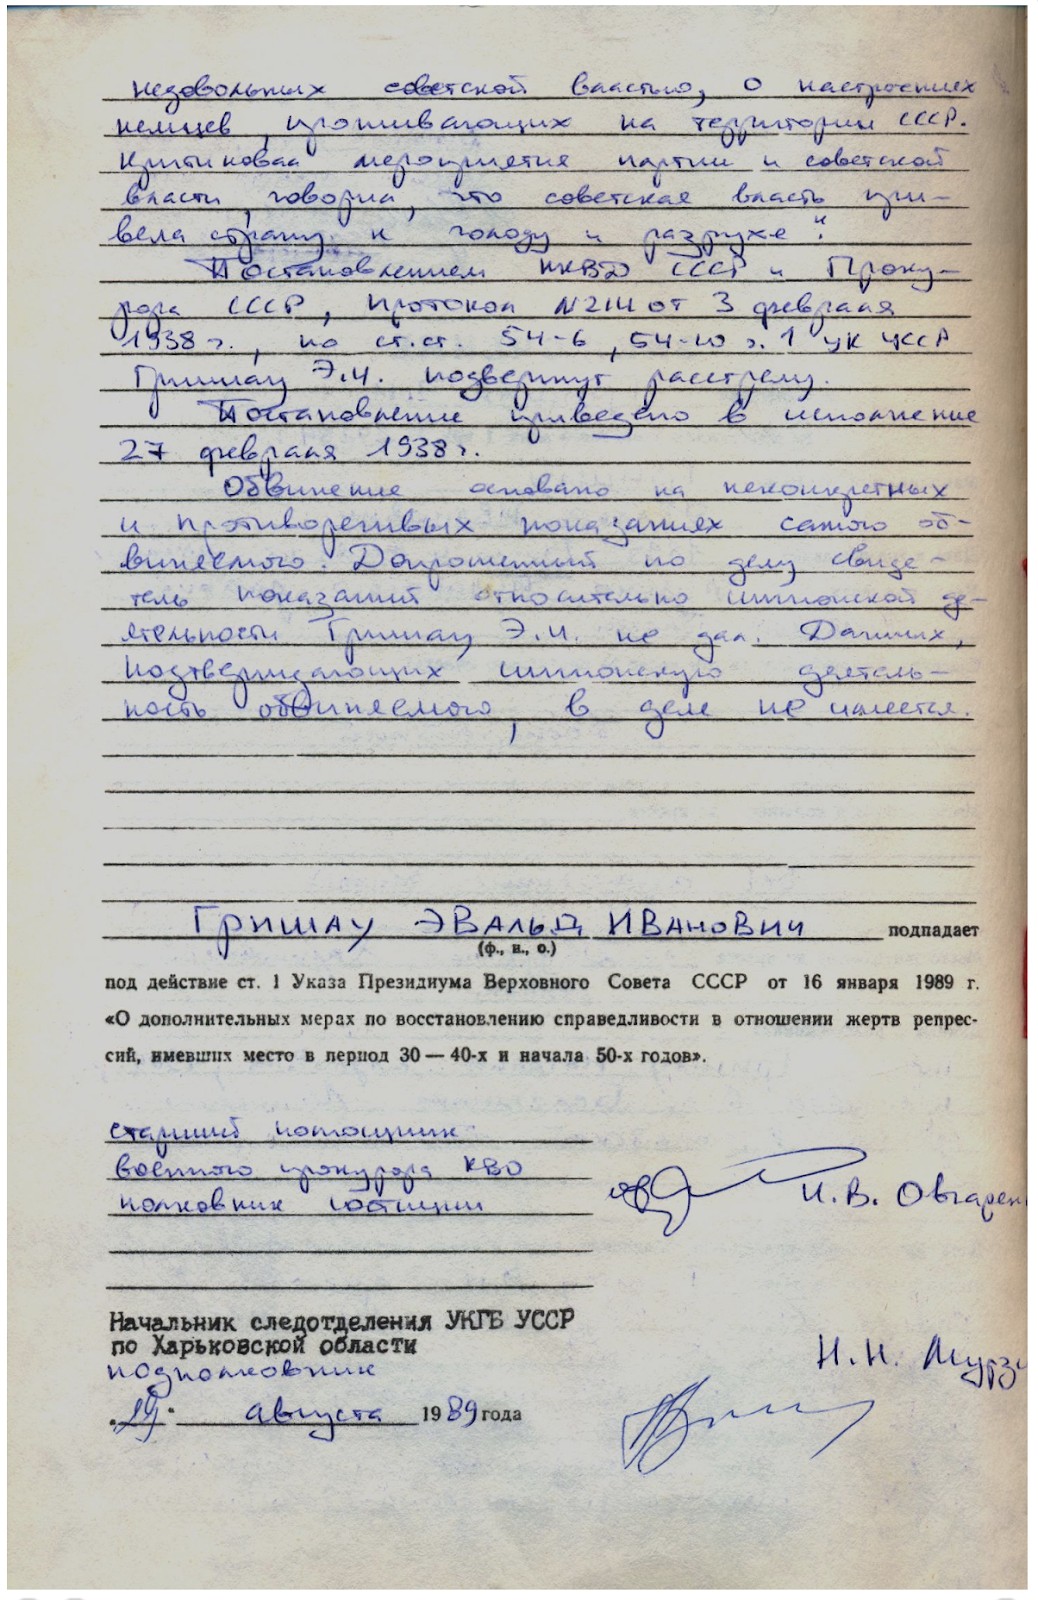 недовольных советской властью, о настроениях
немцев, проживающих на территории СССР.
Критиковал мероприятия партии и советской
власти, говорил, что советская власть при-
вела страну к голоду и разрухе".
Постановлением НКВД СССР и Проку-
рора СССР, протокол № от 3 февраля
1938 г., по ст.ст. 54-6, 54-10 ч. 1 УК УССР
Гришау Э.И. подвергнут расстрелу.
Постановление приведено в исполнение
27 февраля 1938 г.
Обвинение основано на неконкретных
и противоречивых показаниях самого об-
виняемого. Допрошенный по делу свиде-
тель показаний относительно шпионской де-
ятельности Гришау Э.И. не дал. Данных,
подтверждающих шпионскую деятель-
ность обвиняемого, в деле не имеется.
Гришау Эвальд Иванович подпадает
(ф., и., о.)
под действие ст. 1 Указа Президиума Верховного Совета СССР от 16 января 1989 г.
«О дополнительных мерах по восстановлению справедливости в отношении жертв репрес-
сий, имевших место в период 30 — 40-х и начала 50-х годов».
старший помощник
военного прокурора КВО
полковник юстиции И.В. Овчарен
Начальник следотделения УКГБ УССР
по Харьковской области
подполковник Н.Н. Мурз
"29" августа 1989 года